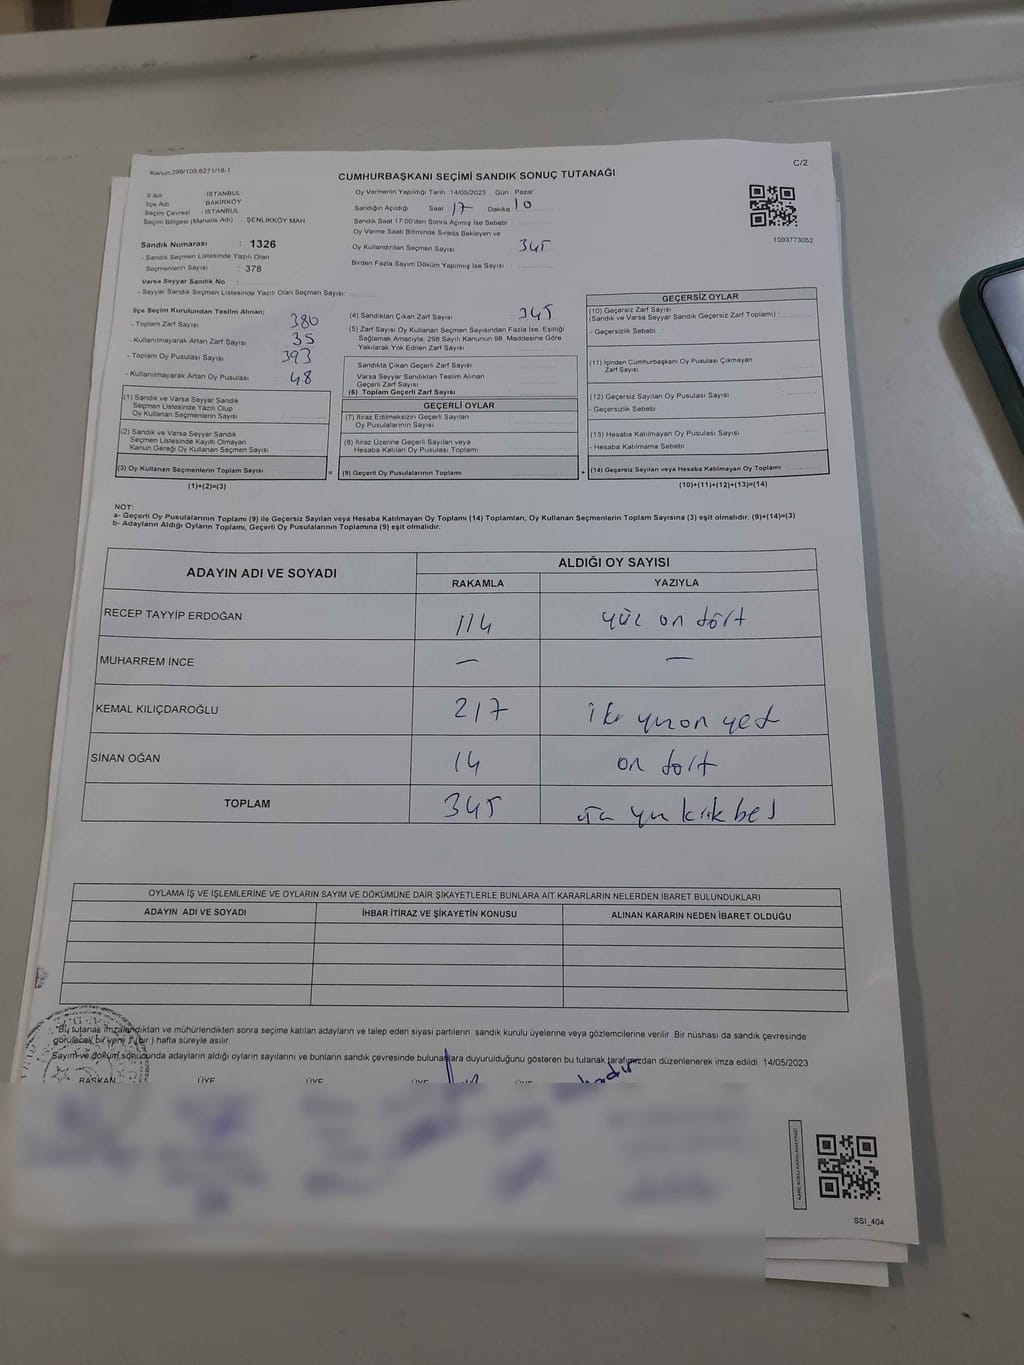 Kanun 298/105.6271/18-1
C/2
CUMHURBAŞKANI SEÇİMİ SANDIK SONUÇ TUTANAĞI
İl Adı : İSTANBUL
İlçe Adı : BAKIRKÖY
Seçim Çevresi : İSTANBUL
Seçim Bölgesi (Mahalle Adı) : ŞENLİKKÖY MAH.
Sandık Numarası : 1326
- Sandık Seçmen Listesinde Yazılı Olan
Seçmenlerin Sayısı : 378
Varsa Seyyar Sandık No :
- Seyyar Sandık Seçmen Listesinde Yazılı Olan Seçmen Sayısı:
Oy Vermenin Yapıldığı Tarih : 14/05/2023 Gün : Pazar
Sandığın Açıldığı Saat 17 Dakika 10
Sandık Saat 17:00'den Sonra Açılmış İse Sebebi
Oy Verme Saati Bitiminde Sırada Bekleyen ve
Oy Kullandırılan Seçmen Sayısı : 345
Birden Fazla Sayım Döküm Yapılmış İse Sayısı :
1093773052
İlçe Seçim Kurulundan Teslim Alınan;
- Toplam Zarf Sayısı : 380
- Kullanılmayarak Artan Zarf Sayısı : 35
- Toplam Oy Pusulası Sayısı : 393
- Kullanılmayarak Artan Oy Pusulası : 48
(1) Sandık ve Varsa Seyyar Sandık
Seçmen Listesinde Yazılı Olup
Oy Kullanan Seçmenlerin Sayısı
(2) Sandık ve Varsa Seyyar Sandık
Seçmen Listesinde Kayıtlı Olmayan
Kanun Gereği Oy Kullanan Seçmen Sayısı
(3) Oy Kullanan Seçmenlerin Toplam Sayısı
(1)+(2)=(3)
(4) Sandıktan Çıkan Zarf Sayısı : 345
(5) Zarf Sayısı Oy Kullanan Seçmen Sayısından Fazla İse, Eşitliği
Sağlamak Amacıyla; 298 Sayılı Kanunun 98. Maddesine Göre
Yakılarak Yok Edilen Zarf Sayısı
Sandıkta Çıkan Geçerli Zarf Sayısı
Varsa Seyyar Sandıktan Teslim Alınan
Geçerli Zarf Sayısı
(6) Toplam Geçerli Zarf Sayısı
GEÇERLİ OYLAR
(7) İtiraz Edilmeksizin Geçerli Sayılan
Oy Pusulalarının Sayısı
(8) İtiraz Üzerine Geçerli Sayılan veya
Hesaba Katılan Oy Pusulası Toplamı
= (9) Geçerli Oy Pusulalarının Toplamı +
GEÇERSİZ OYLAR
(10) Geçersiz Zarf Sayısı
(Sandık ve Varsa Seyyar Sandık Geçersiz Zarf Toplamı)
- Geçersizlik Sebebi :
(11) İçinden Cumhurbaşkanı Oy Pusulası Çıkmayan
Zarf Sayısı
(12) Geçersiz Sayılan Oy Pusulası Sayısı
- Geçersizlik Sebebi
(13) Hesaba Katılmayan Oy Pusulası Sayısı
- Hesaba Katılmama Sebebi
(14) Geçersiz Sayılan veya Hesaba Katılmayan Oy Toplamı
(10)+(11)+(12)+(13)=(14)
NOT:
a- Geçerli Oy Pusulalarının Toplamı (9) ile Geçersiz Sayılan veya Hesaba Katılmayan Oy Toplamı (14) Toplamları, Oy Kullanan Seçmenlerin Toplam Sayısına (3) eşit olmalıdır. (9)+(14)=(3)
b- Adayların Aldığı Oyların Toplamı, Geçerli Oy Pusulalarının Toplamına (9) eşit olmalıdır.
ADAYIN ADI VE SOYADI ALDIĞI OY SAYISI
RAKAMLA YAZIYLA
RECEP TAYYİP ERDOĞAN 114 yüz on dört
MUHARREM İNCE — —
KEMAL KILIÇDAROĞLU 217 iki yüz on yedi
SİNAN OĞAN 14 on dört
TOPLAM 345 üç yüz kırk beş
OYLAMA İŞ VE İŞLEMLERİNE VE OYLARIN SAYIM VE DÖKÜMÜNE DAİR ŞİKAYETLERLE BUNLARA AİT KARARLARIN NELERDEN İBARET BULUNDUKLARI
ADAYIN ADI VE SOYADI İHBAR İTİRAZ VE ŞİKAYETİN KONUSU ALINAN KARARIN NEDEN İBARET OLDUĞU
"Bu tutanak imzalandıktan ve mühürlendikten sonra seçime katılan adayların ve talep eden siyasi partilerin sandık kurulu üyelerine veya gözlemcilerine verilir. Bir nüshası da sandık çevresinde
görülecek bir yere 1 (bir) hafta süreyle asılır.
Sayım ve döküm sonucunda adayların aldığı oyların sayılarını ve bunların sandık çevresinde bulunanlara duyurulduğunu gösteren bu tutanak tarafımızdan düzenlenerek imza edildi. 14/05/2023
BAŞKAN ÜYE ÜYE ÜYE ÜYE
SSI_404